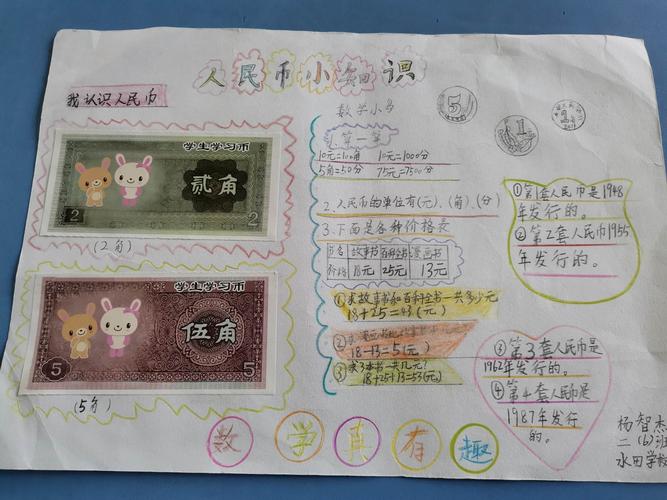 人民币小知识
我认识人民币
学生学习币
贰角
2
2
(2角)
学生学习币
伍角
5
5
(5角)
数学小乌
算一算
10元=100角 10元=1000分
5角=50分 75元=7500分
2、人民币的单位有(元)、(角)、(分)
3、下面是各种价格表
书名 故事书 百科全书 漫画书
价格 18元 25元 13元
①买故事书和百科全书一共多少元
18+25=43(元)
②
18-13=5(元)
③买3本书一共几元?
18+25+13=53(元)
5
1
①第1套人民币是1948
年发行的。
②第2套人民币1955
年发行的。
③第3套人民币是
1962年发行的。
④第4套人民币是
1987年发行
的。
数学真有趣
杨智杰
二(6)班
水田学校